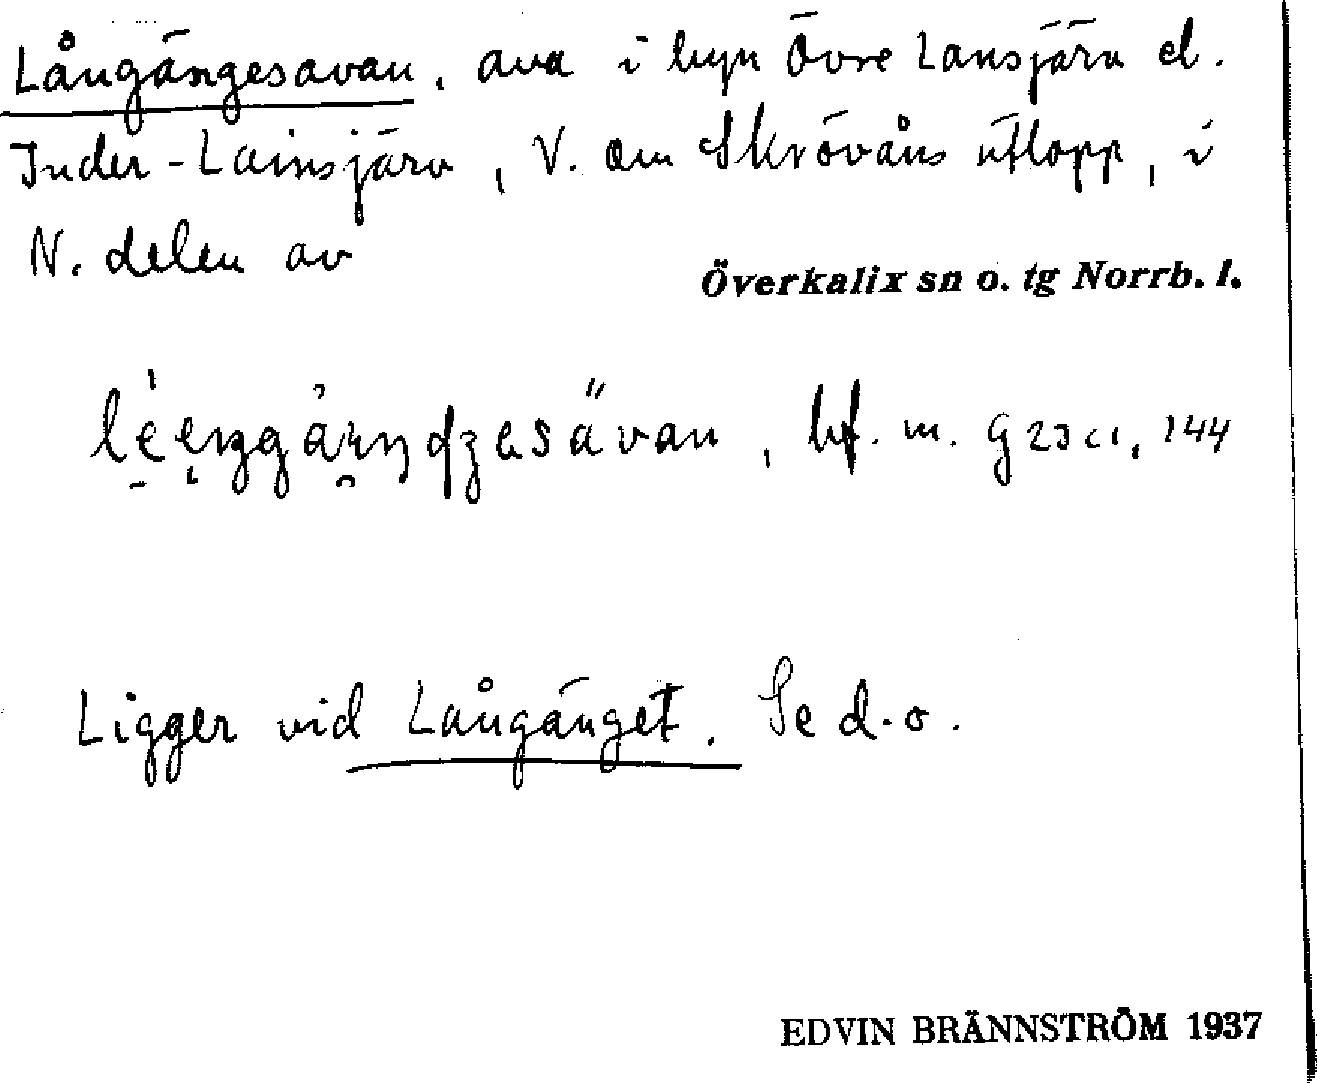 Långängesavan, ava i byn Övre Lansjärv el.
Inder-Lainsjärv, V. om Skrövåns utlopp, i
N. delen av
Överkalix sn o. tg Norrb. l.
bf. m.
Ligger vid Långänget. Se d.o.
EDVIN BRÄNNSTRÖM 1937